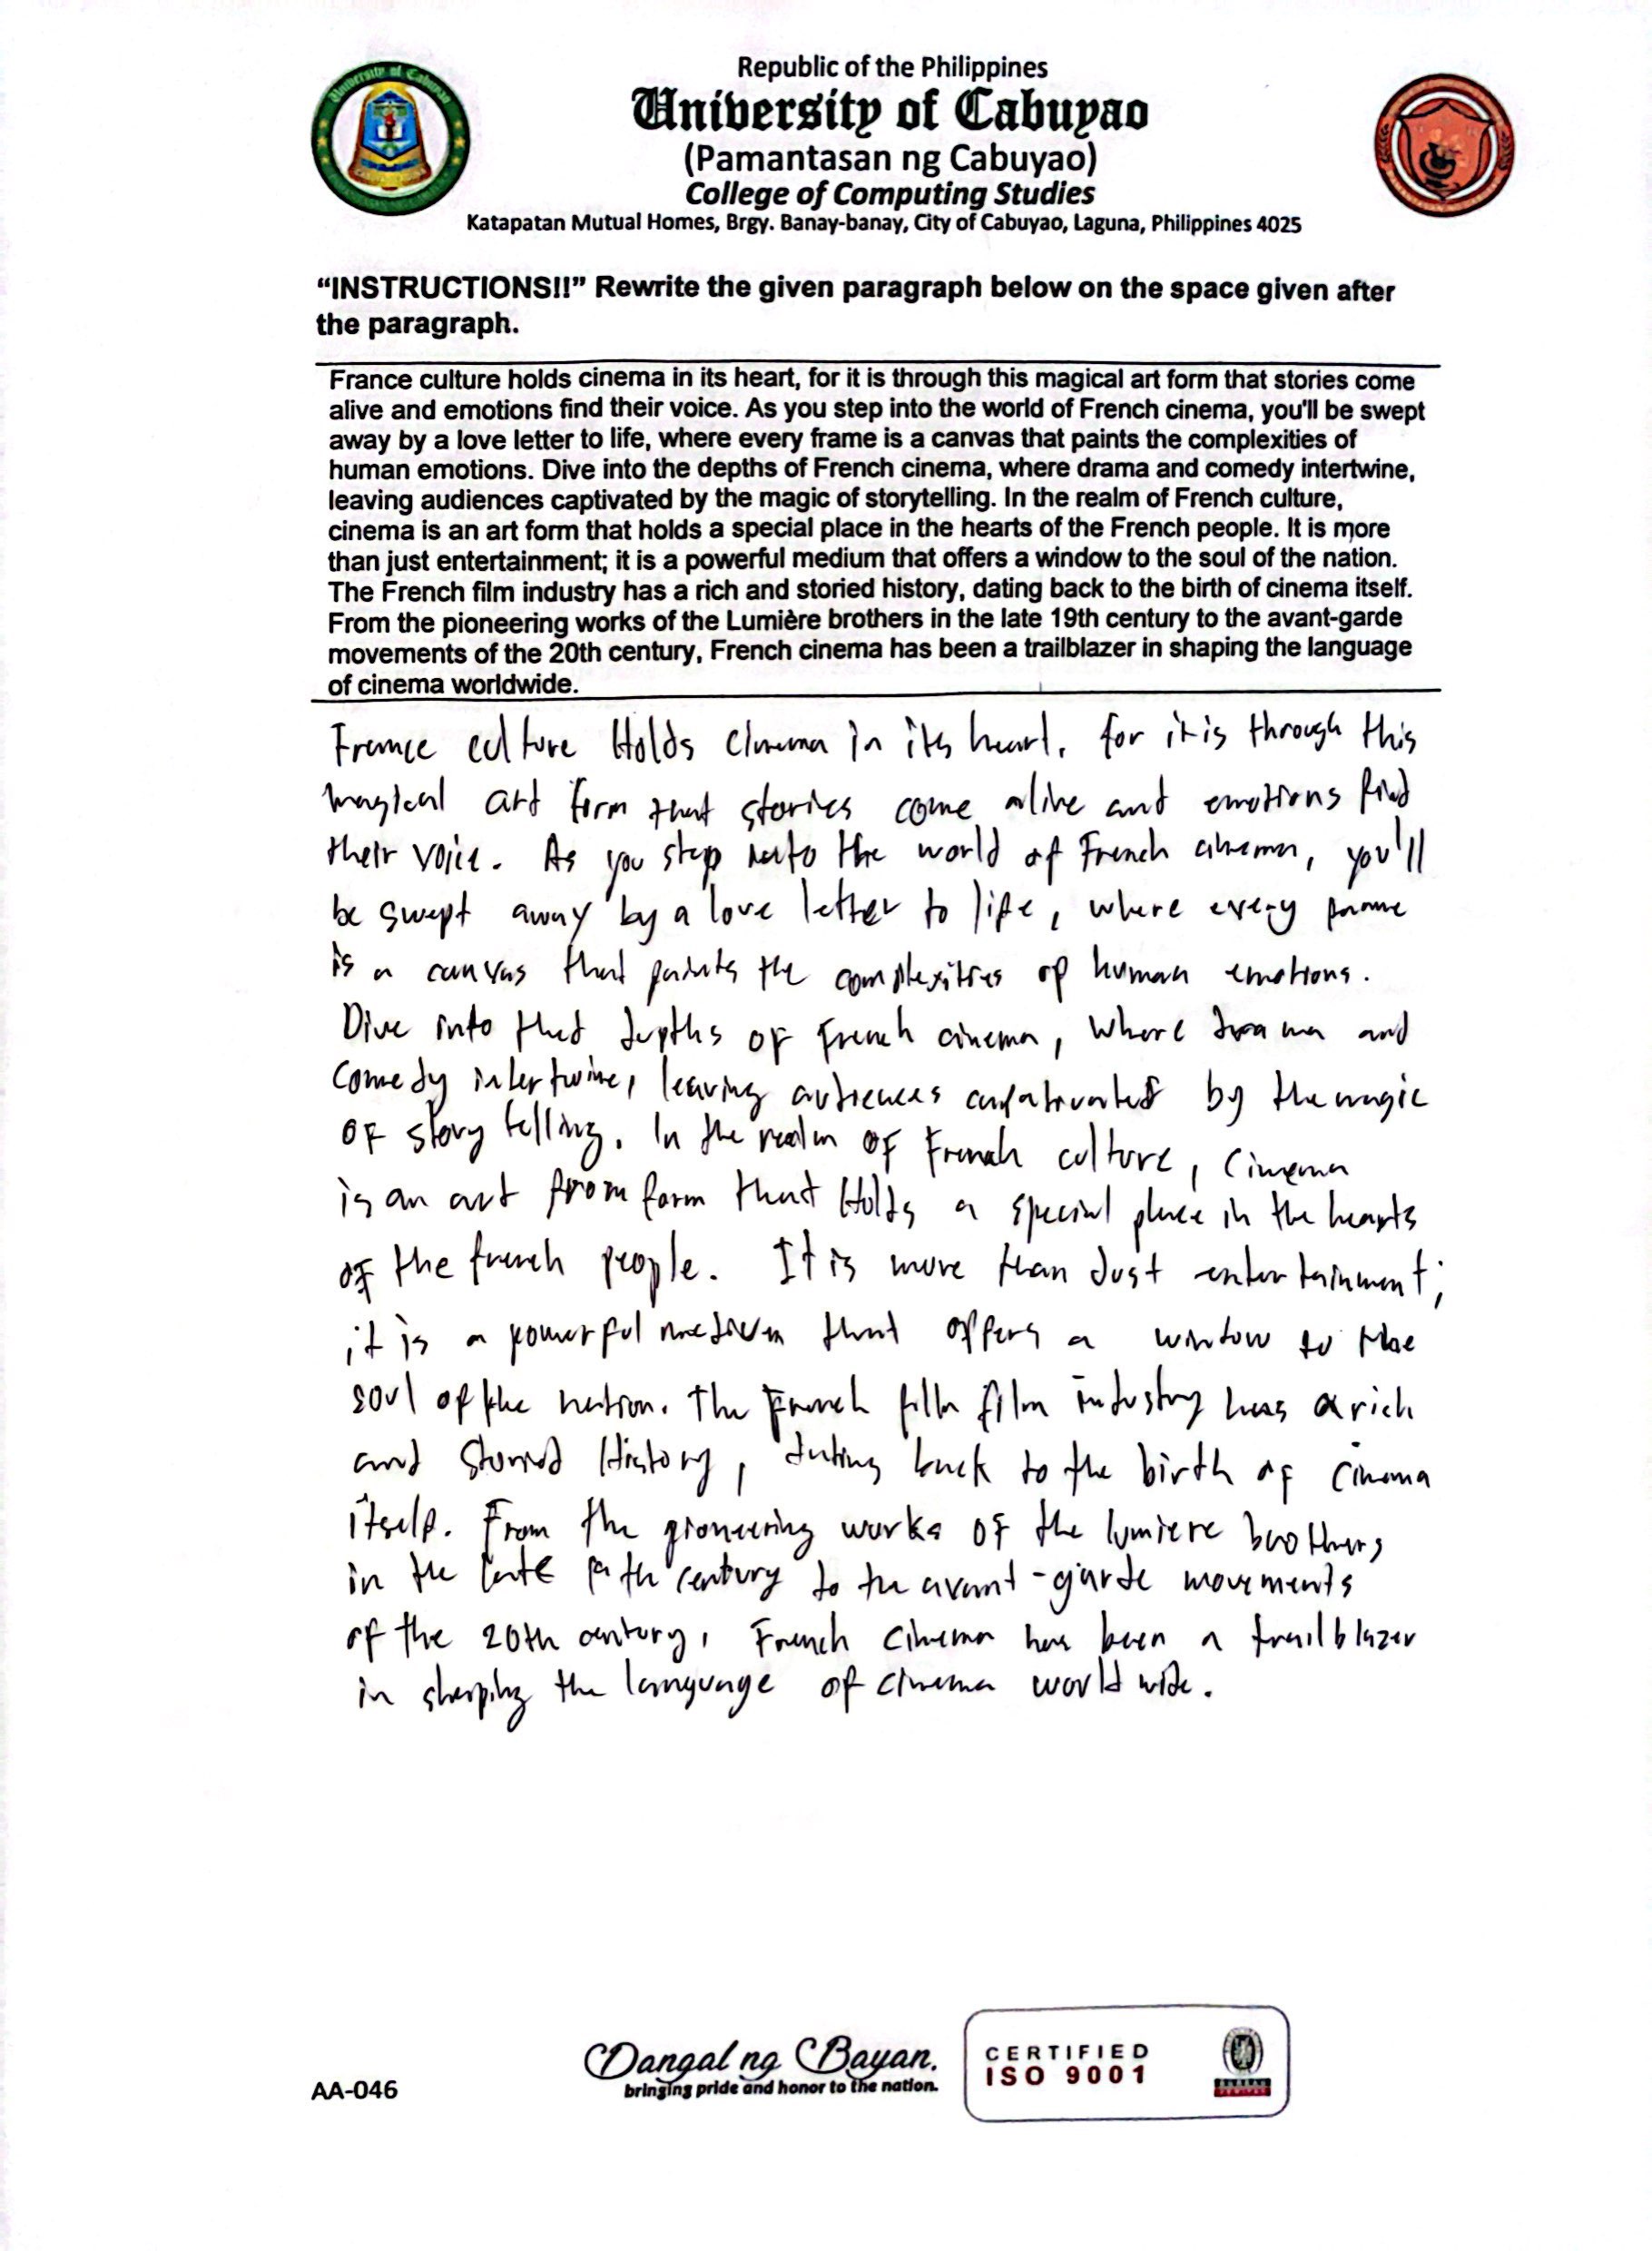 University of Cabuyao
Republic of the Philippines
University of Cabuyao
(Pamantasan ng Cabuyao)
College of Computing Studies
Katapatan Mutual Homes, Brgy. Banay-banay, City of Cabuyao, Laguna, Philippines 4025
“INSTRUCTIONS!!” Rewrite the given paragraph below on the space given after
the paragraph.
France culture holds cinema in its heart, for it is through this magical art form that stories come
alive and emotions find their voice. As you step into the world of French cinema, you'll be swept
away by a love letter to life, where every frame is a canvas that paints the complexities of
human emotions. Dive into the depths of French cinema, where drama and comedy intertwine,
leaving audiences captivated by the magic of storytelling. In the realm of French culture,
cinema is an art form that holds a special place in the hearts of the French people. It is more
than just entertainment; it is a powerful medium that offers a window to the soul of the nation.
The French film industry has a rich and storied history, dating back to the birth of cinema itself.
From the pioneering works of the Lumière brothers in the late 19th century to the avant-garde
movements of the 20th century, French cinema has been a trailblazer in shaping the language
of cinema worldwide.
France culture Holds cinema in its heart, for it is through this
magical art form that stories come alive and emotions find
their voice. As you step into the world of French cinema, you'll
be swept away by a love letter to life, where every frame
is a canvas that paints the complexities of human emotions.
Dive into that depths of French cinema, where drama and
comedy intertwine, leaving audiences by the magic
OF story telling. In the realm OF French culture, cinema
is an art from form that Holds a special place in the hearts
of the french people. It is more than Just entertainment;
it is a powerful medium that offers a window to the
soul of the nation. The French film industry has a rich
and storied History, dating back to the birth of cinema
itself. From the pioneering works OF the lumiere brothers
in the late 19th century to the avant-garde movements
of the 20th century, French cinema has been a trailblazer
in shaping the language of cinema world wide.
AA-046
Dangal ng Bayan.
bringing pride and honor to the nation.
CERTIFIED
ISO 9001